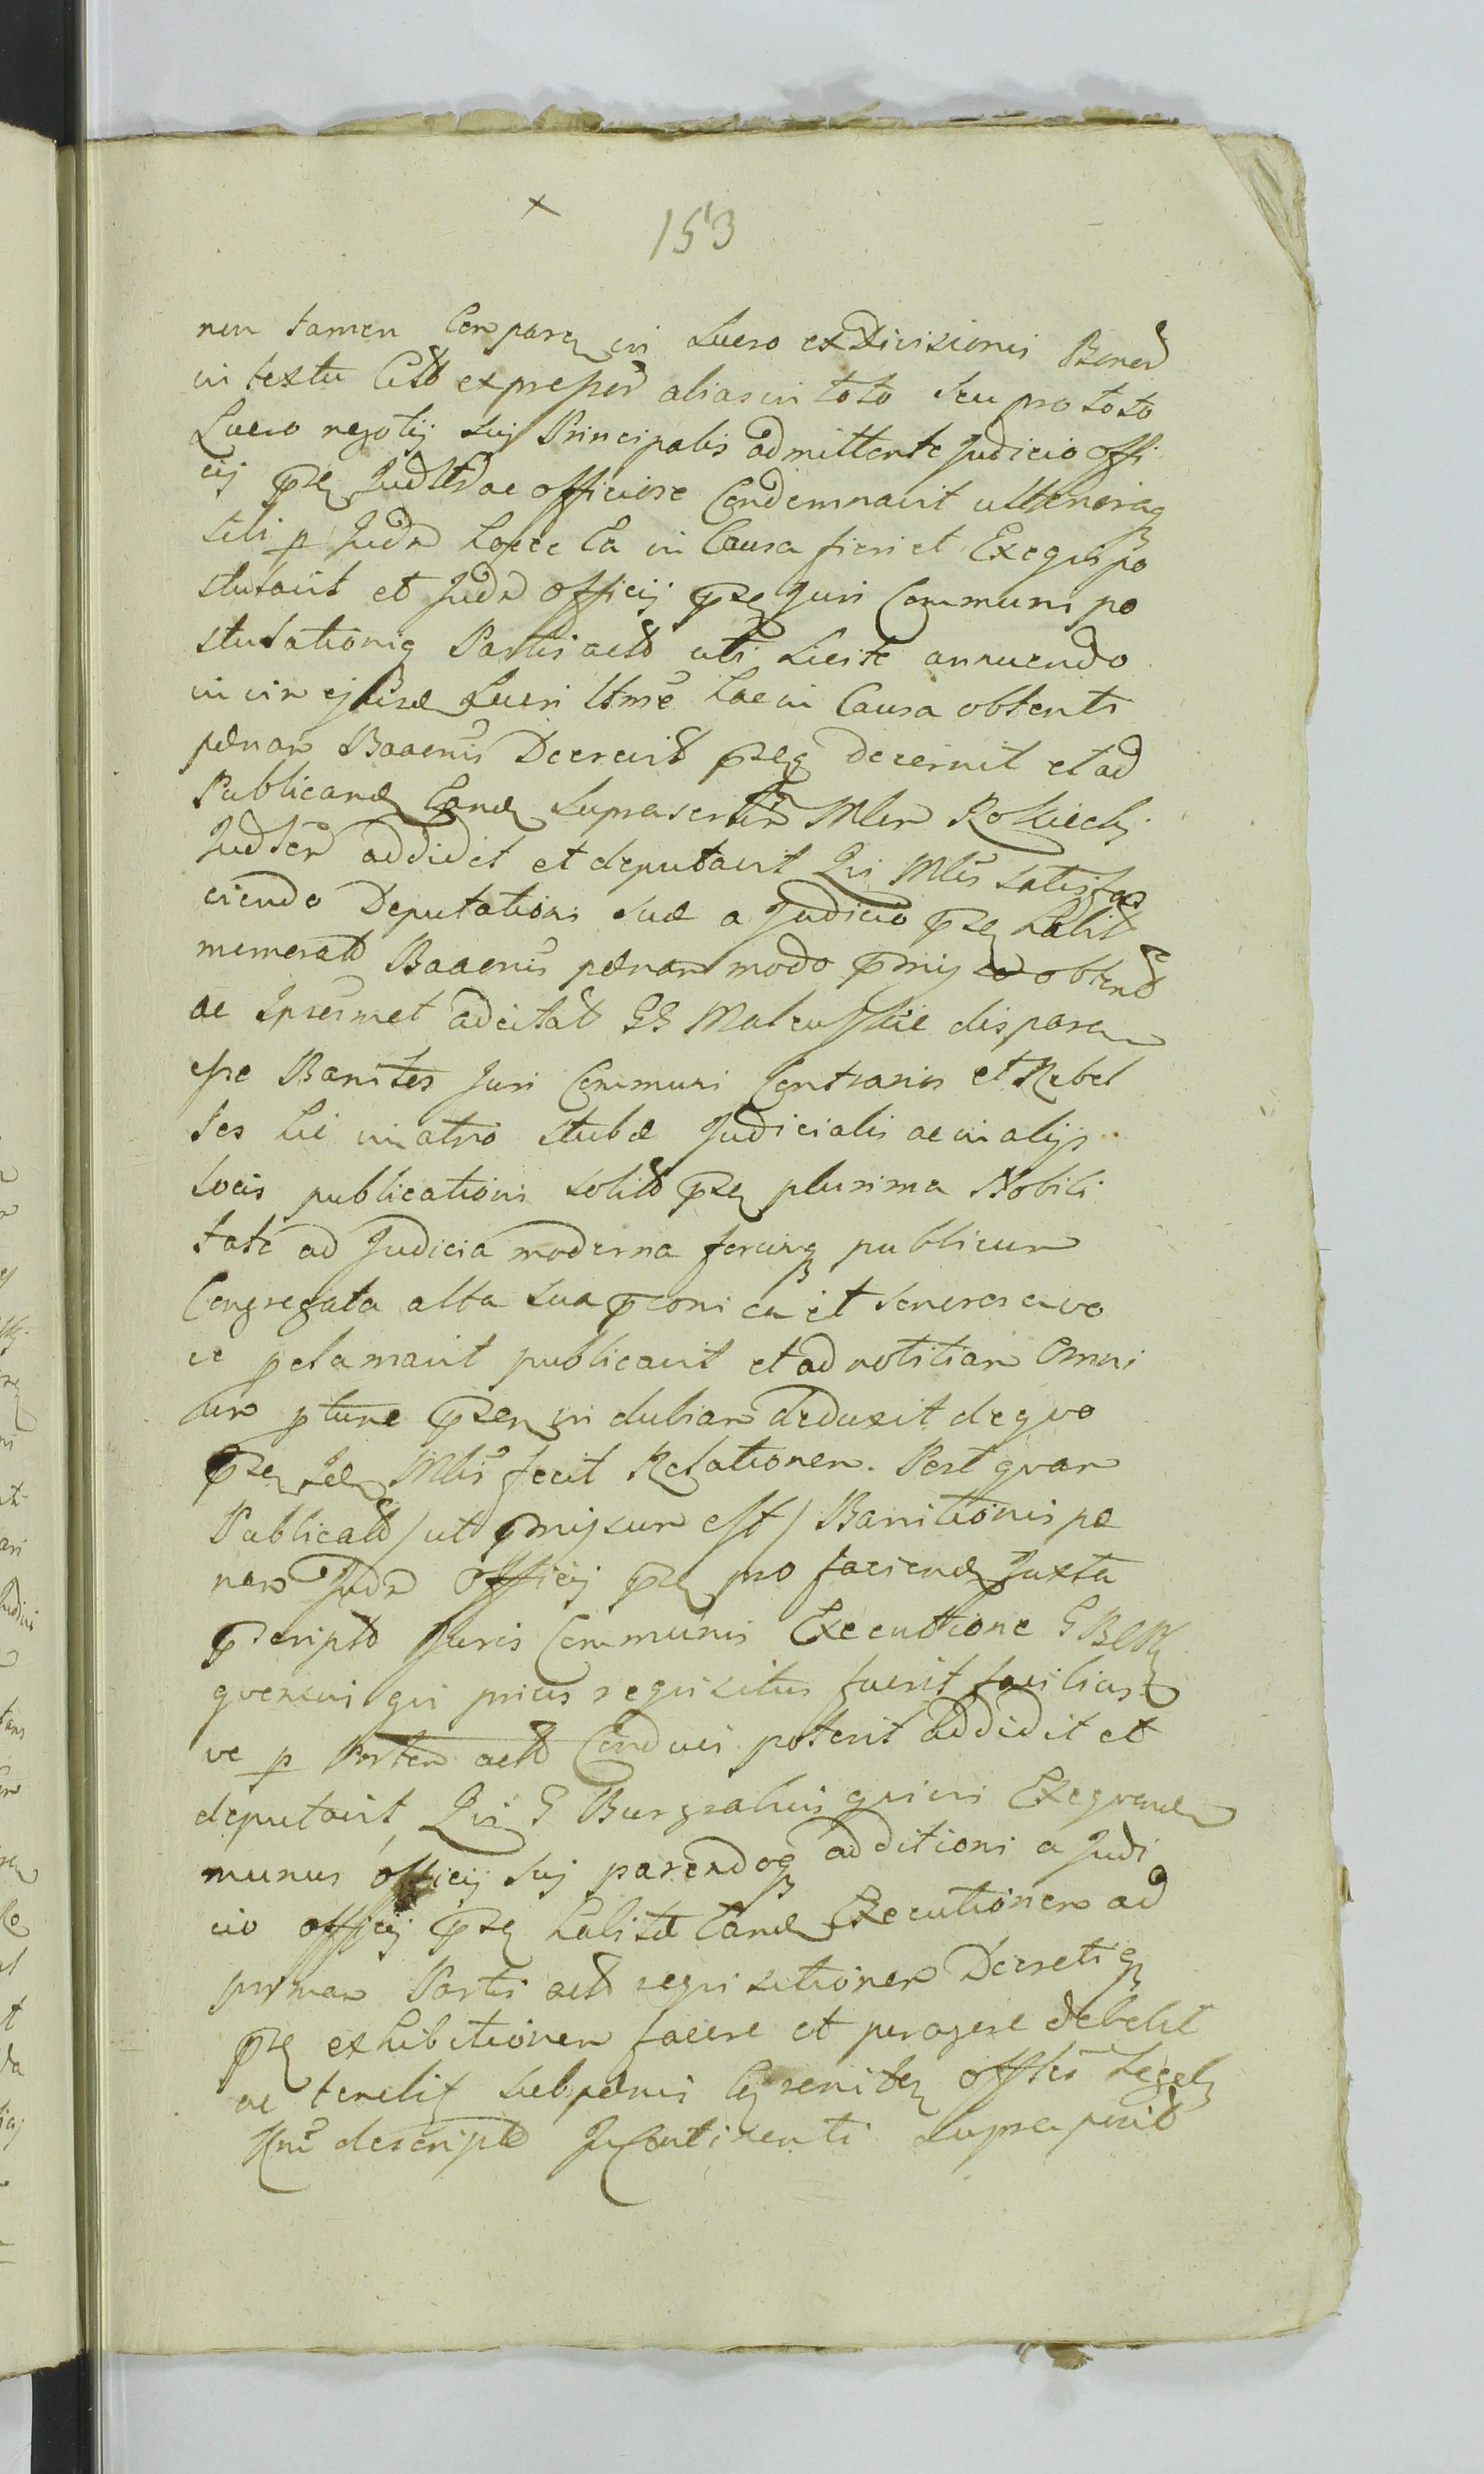 x
153
non tamen Comparen in Lucro ex Divisionis Bonor
in textu Citt expressor alias in toto seu pro toto
Lucro negotij suj Principalis admittente Judicio offi
cij psen Judltr ac officiose Condemnavit ulteriorq
sibi p Judm Lopec Ca in Causa fieri et Exequi po
stulavit et Judm officij psen Juri Communi po
stulationiq Partis actt uti Licite annuendo
in vim Lucri Ltme hac in Causa obtenti
pænam Baaenis Decrevit pseq decernit et ad
Publicand Eand suprascrtm Mlem
Judlem addidit et deputavit Qui Mlis satisfa
ciendo Deputationi suæ a Judicio psen habit
memoratt Baaenis pænam modo pmij obtent
ac Ipsosmet adcitat GG disparen
esse Banitos Juri Communi Contrarios et Rebel
les hic in atrio stubæ Judicialis ac in alijs
locis publicationi solitt psen plurima Nobili
tate ad Judicia moderna forumq publicum
Congregata alta sua pconi ca et sonorosa vo
ce pclamavit publicavit et ad notitiam Omni
um ptunc psen in dubiam deduxit de quo
psen Idem Mlis fecit Relationem. Post quam
Publicatt / ut pmissum est / Banitionis pæ
nam Judm Officij psen pro faciend Juxta
pscriptt Juris Communis Executione G
quemvis qui prius requisitus fuerit facilius
ve p Partem actt Conduci poterit addidit et
deputavit, Qui G Burgrabius quivis Exequend
munus officij suj parendoq additioni a Judi
cio officij psen habitæ Eand Executionem ad
primam Partis actt requisitionem Decretiq
psen exhibitionem facere et peragere debebit
ac tenebit sub pænis
descriptt In Continenti